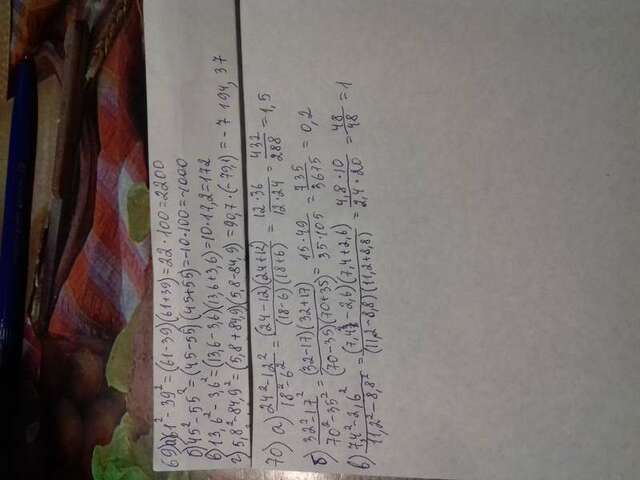 69) а) 61² - 39² = (61-39)(61+39) = 22·100 = 2200
б) 45² - 55² = (45-55)(45+55) = -10·100 = -1000
в) 13,6² - 3,6² = (13,6-3,6)(13,6+3,6) = 10·17,2 = 172
г) 5,8² - 84,9² = (5,8+84,9)(5,8-84,9) = 90,7·(-79,1) = -7 194,37
70) а) (24²-12²)/(18²-6²) = ((24-12)(24+12))/((18-6)(18+6)) = (12·36)/(12·24) = 432/288 = 1,5
б) (32²-17²)/(70²-35²) = ((32-17)(32+17))/((70-35)(70+35)) = (15·49)/(35·105) = 735/3675 = 0,2
в) (7,4²-2,6²)/(11,2²-8,8²) = ((7,4-2,6)(7,4+2,6))/((11,2-8,8)(11,2+8,8)) = (4,8·10)/(2,4·20) = 48/48 = 1